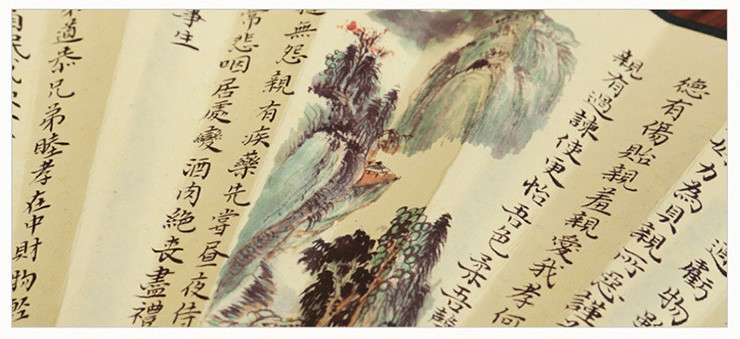 過虧物
力為具親所惡謹
德有傷貽親羞親愛我孝何
親有過諫使更怡吾色柔吾聲
無怨親有疾藥先嘗昼夜侍
常悲咽居處變酒肉絕喪盡禮
事生
道恭兄弟睦孝在中財物